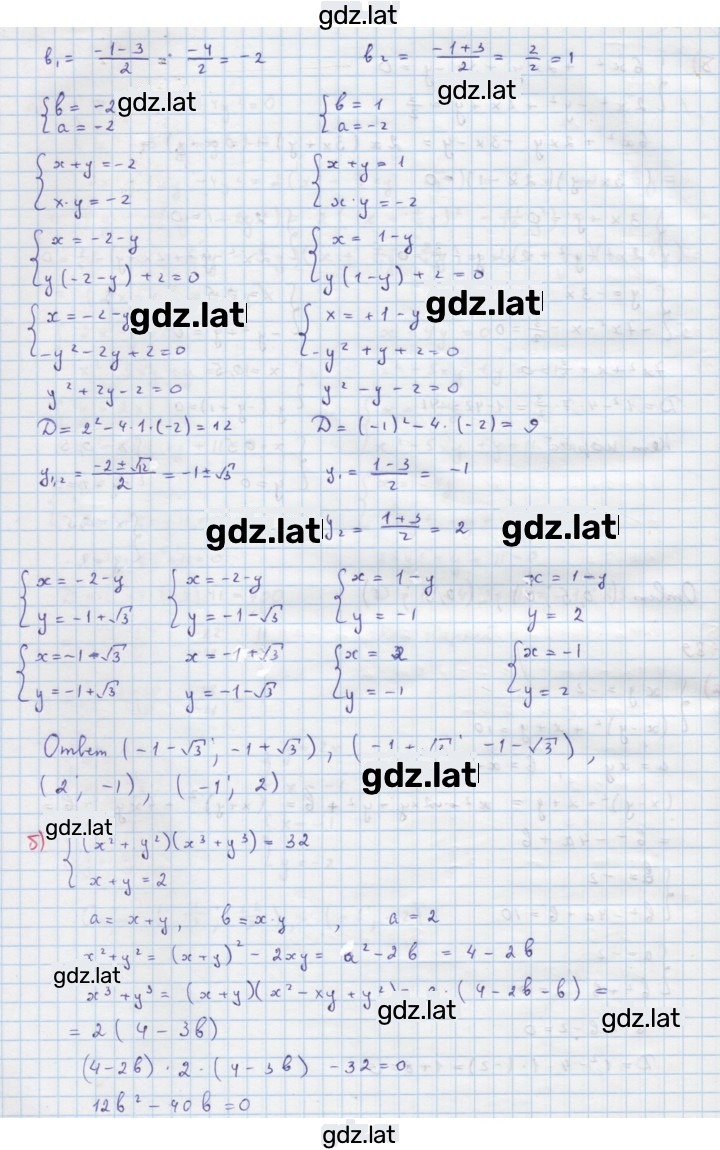 gdz.lat
в₁ = (-1-3)/2 = -4/2 = -2    в₂ = (-1+3)/2 = 2/2 = 1
{ в = -2 gdz.lat    { в = 1 gdz.lat
{ a = -2    { a = -2
{ x+y = -2    { x+y = 1
{ x·y = -2    { x·y = -2
{ x = -2-y    { x = 1-y
{ y(-2-y)+2=0    { y(1-y)+2=0
{ x = -2-y gdz.lat    { x = +1-y gdz.lat
{ -y²-2y+2=0    { -y²+y+2=0
y²+2y-2=0    y²-y-2=0
D = 2²-4·1·(-2) = 12    D = (-1)²-4·(-2) = 9
y₁,₂ = (-2±√12)/2 = -1±√3    y₁ = (1-3)/2 = -1
gdz.lat y₂ = (1+3)/2 = 2 gdz.lat
{ x = -2-y    { x = -2-y    { x = 1-y    x = 1-y
{ y = -1+√3    { y = -1-√3    { y = -1    y = 2
{ x = -1-√3    x = -1+√3    { x = 2    { x = -1
{ y = -1+√3    y = -1-√3    { y = -1    { y = 2
Ответ (-1-√3; -1+√3), (-1+ -1-√3),
(2; -1), (-1; 2) gdz.lat
gdz.lat
б) { (x²+y²)(x³+y³) = 32
{ x+y = 2
a = x+y, в = x·y, a = 2
x²+y² = (x+y)² - 2xy = a²-2в = 4-2в
gdz.lat
x³+y³ = (x+y)(x²-xy+y²) = ·(4-2в-в) =
gdz.lat gdz.lat
= 2(4-3в)
(4-2в)·2·(4-3в) -32=0
12в² - 40в = 0
gdz.lat